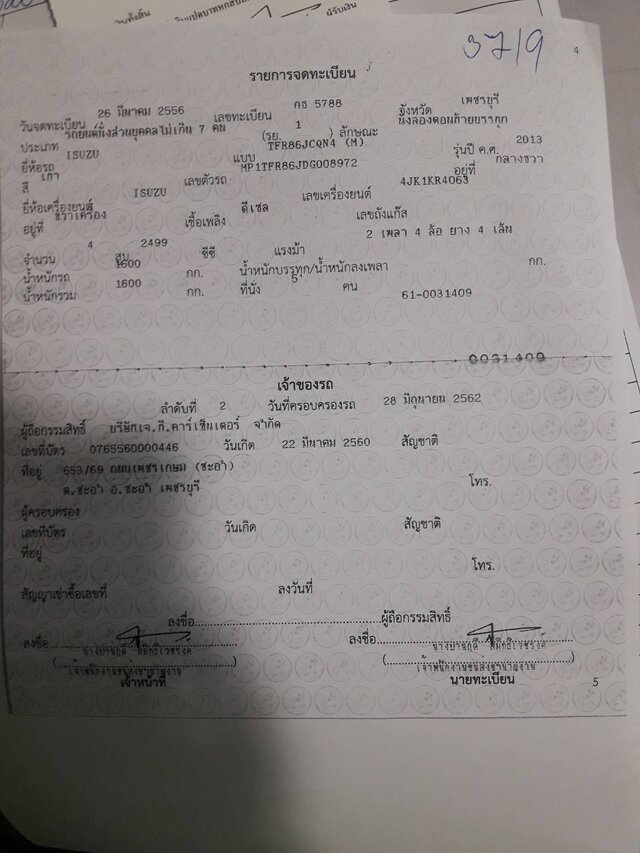 3719
4
รายการจดทะเบียน
วันจดทะเบียน 26 มีนาคม 2556 เลขทะเบียน กธ 5788 จังหวัด เพชรบุรี
ประเภท รถยนต์นั่งส่วนบุคคลไม่เกิน 7 คน (รย. 1 ) ลักษณะ นั่งสองตอนท้ายบรรทุก
ยี่ห้อรถ ISUZU แบบ TFR86JCQN4 (M) รุ่นปี ค.ศ. 2013
สี เทา เลขตัวรถ MP1TFR86JDG008972 อยู่ที่ กลางขวา
ยี่ห้อเครื่องยนต์ ISUZU เลขเครื่องยนต์ 4JK1KR4063
อยู่ที่ ขวาเครื่อง เชื้อเพลิง ดีเซล เลขถังแก๊ส
จำนวน 4 สูบ 2499 ซีซี แรงม้า 2 เพลา 4 ล้อ ยาง 4 เส้น
น้ำหนักรถ 1600 กก. น้ำหนักบรรทุก/น้ำหนักลงเพลา กก.
น้ำหนักรวม 1600 กก. ที่นั่ง 5 คน 61-0031409
0031409
เจ้าของรถ
ลำดับที่ 2 วันที่ครอบครองรถ 28 มิถุนายน 2562
ผู้ถือกรรมสิทธิ์ บริษัทเจ.กี.คาร์เซ็นเตอร์ จำกัด
เลขที่บัตร 0765560000446 วันเกิด 22 มีนาคม 2560 สัญชาติ
ที่อยู่ 653/69 ถนนเพชรเกษม (ชะอำ)
ต.ชะอำ อ.ชะอำ เพชรบุรี โทร.
ผู้ครอบครอง
เลขที่บัตร วันเกิด สัญชาติ
ที่อยู่
โทร.
สัญญาเช่าซื้อเลขที่ ลงวันที่
ลงชื่อ ผู้ถือกรรมสิทธิ์
ลงชื่อ ลงชื่อ
เจ้าหน้าที่ นายทะเบียน
5